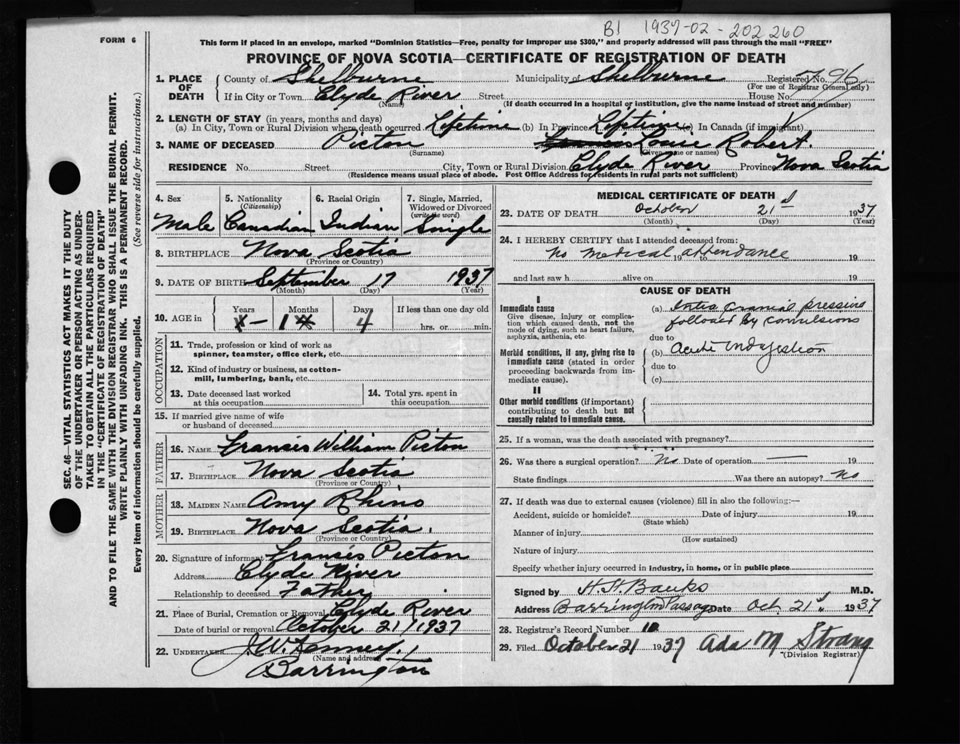 B1 1937-02-202260
FORM 6
This form if placed in an envelope, marked "Dominion Statistics—Free, penalty for improper use $300," and properly addressed will pass through the mail "FREE"
PROVINCE OF NOVA SCOTIA—CERTIFICATE OF REGISTRATION OF DEATH
SEC. 46—VITAL STATISTICS ACT MAKES IT THE DUTY
OF THE UNDERTAKER OR PERSON ACTING AS UNDER-
TAKER TO OBTAIN ALL THE PARTICULARS REQUIRED
IN THE "CERTIFICATE OF REGISTRATION OF DEATH"
AND TO FILE THE SAME WITH THE DIVISION REGISTRAR WHO SHALL ISSUE THE BURIAL PERMIT.
WRITE PLAINLY WITH UNFADING INK. THIS IS A PERMANENT RECORD.
Every item of information should be carefully supplied. (See reverse side for instructions.)
1. PLACE OF DEATH County of Shelburne Municipality of Shelburne Registered No. 96
(For use of Registrar General only)
If in City or Town Clyde River Street House No.
(Name) (If death occurred in a hospital or institution, give the name instead of street and number)
2. LENGTH OF STAY (in years, months and days)
(a) In City, Town or Rural Division where death occurred Lifetime (b) In Province Lifetime (c) In Canada (if immigrant)
3. NAME OF DECEASED Picton Louie Robert.
(Surname) (Given name or names)
RESIDENCE No. Street City, Town or Rural Division Clyde River Province Nova Scotia
(Residence means usual place of abode. Post Office Address for residents in rural parts not sufficient)
4. Sex 5. Nationality (Citizenship) 6. Racial Origin 7. Single, Married, Widowed or Divorced (write the word)
Male Canadian Indian Single
8. BIRTHPLACE Nova Scotia
(Province or Country)
9. DATE OF BIRTH September 17 1937
(Month) (Day) (Year)
10. AGE in Years Months Days If less than one day old
— 1 4 hrs. or min.
OCCUPATION
11. Trade, profession or kind of work as
spinner, teamster, office clerk, etc.
12. Kind of industry or business, as cotton-
mill, lumbering, bank, etc.
13. Date deceased last worked
at this occupation
14. Total yrs. spent in
this occupation
15. If married give name of wife
or husband of deceased
FATHER
16. NAME Francis William Picton
17. BIRTHPLACE Nova Scotia
(Province or Country)
MOTHER
18. MAIDEN NAME Amy Rhino
19. BIRTHPLACE Nova Scotia.
(Province or Country)
20. Signature of informant Francis Picton
Address Clyde River
Relationship to deceased Father
21. Place of Burial, Cremation or Removal Clyde River
Date of burial or removal October 21/1937
22. UNDERTAKER J. W. Kenney,
(Name and address)
Barrington
MEDICAL CERTIFICATE OF DEATH
23. DATE OF DEATH October 21st 1937
(Month) (Day) (Year)
24. I HEREBY CERTIFY that I attended deceased from:
No medical 19 to attendance 19
and last saw h alive on 19
CAUSE OF DEATH
I
Immediate cause
Give disease, injury or complica-
tion which caused death, not the
mode of dying, such as heart failure,
asphyxia, asthenia, etc.
(a) Intra cranial pressure
followed by convulsions
due to
Morbid conditions, if any, giving rise to
immediate cause (stated in order
proceeding backwards from im-
mediate cause).
(b) Acute indigestion
due to
(c)
II
Other morbid conditions (if important)
contributing to death but not
causally related to immediate cause.
25. If a woman, was the death associated with pregnancy?
26. Was there a surgical operation? No Date of operation — 19
State findings Was there an autopsy? No
27. If death was due to external causes (violence) fill in also the following:—
Accident, suicide or homicide? Date of injury 19
(State which)
Manner of injury
(How sustained)
Nature of injury
Specify whether injury occurred in industry, in home, or in public place
Signed by H. H. Banks M.D.
Address Barrington Passage Date Oct. 21st 1937
28. Registrar's Record Number
29. Filed October 21 1937 Ada M Strang
(Division Registrar)